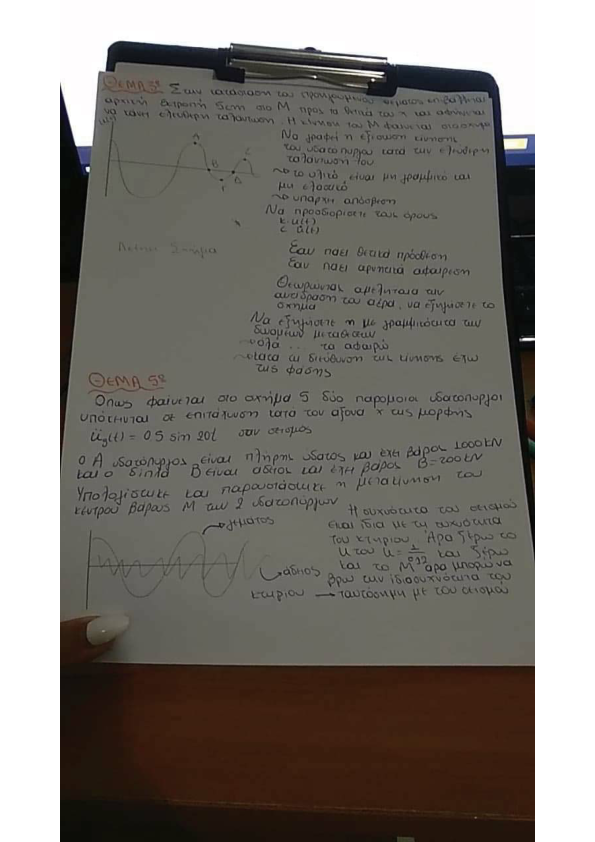 ΘΕΜΑ 3º Στην κατάσταση του προηγούμενου θέματος επιβάλλεται
αρχική εκτροπή 5cm στο Μ προς τα θετικά του x και αφήνεται
να κάνει ελεύθερη ταλάντωση. Η κίνηση του Μ φαίνεται στο σχήμα
u(t)
A
B
C
Να γραφεί η εξίσωση κίνησης
του υδατόπυργου κατά την ελεύθερη
ταλάντωση του
το υλικό είναι μη γραμμικό και
μη ελαστικό
υπάρχει απόσβεση
Να προσδιορίσετε τους όρους
k·u(t)
c u̇(t)
Λείπει Σχήμα
Εαν πάει θετικά πρόσθεση
Εαν πάει αρνητικά αφαίρεση
Θεωρώντας αμελητέα την
αντίδραση του αέρα, να εξηγήσετε το
σχήμα
Να εξηγήσετε η μη γραμμικότητα των
δυνάμεων μετάθεσεων
... τα αφαιρώ
κατά τη διεύθυνση της κίνησης έξω
της φάσης
ΘΕΜΑ 5º
Οπως φαίνεται στο σχήμα 5 δύο παρόμοιοι υδατόπυργοι
υπόκεινται σε επιτάχυνση κατά τον άξονα x της μορφής
üg(t) = 0.5 sin 20t σαν σεισμός
Ο Α υδατόπυργος είναι πλήρης ύδατος και έχει βάρος 1000 kN
και ο διπλά Β είναι άδειος και έχει βάρος B=200kN
Υπολογίστηκε και παρουσιάστηκε η μετακίνηση του
κέντρου βάρους Μ των 2 υδατόπυργων
γεμάτος
άδειος
Η συχνότητα του σεισμού
είναι ίδια με τη συχνότητα
του κτηρίου. Άρα ξέρω το
και ξέρω
και το Μ άρα μπορώ να
βρω την ιδιοσυχνότητα του
κτιρίου → ταυτόσημη με του σεισμού